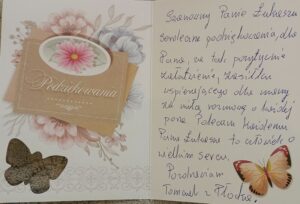 Podziękowania
Szanowny Panie Łukaszu
serdeczne podziękowania dla
Pana, za tak pozytywne
załatwienie, zasiłku
wspierającego dla mamy
za miłą rozmowę o każdej
porze Polecam każdemu
Pana Łukasza to człowiek o
wielkim sercu.
Pozdrawiam
Tomasz z Płocka.